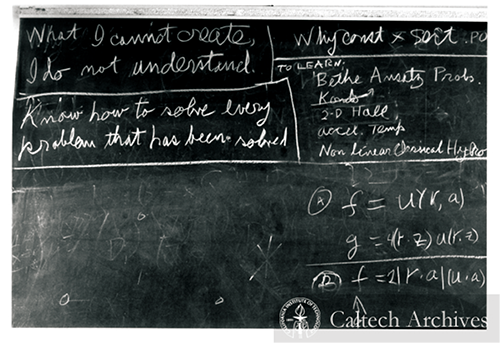 What I cannot create,
I do not understand.
Know how to solve every
problem that has been solved
Why const × sort . PO
TO LEARN:
Bethe Ansatz Probs.
Kondo
2-D Hall
accel. Temp
Non linear Classical Hydro
(A) f = u(r, a)
g = 4(r·z) u(r, z)
(B) f = 2|r·a|(u·a)
Caltech Archives